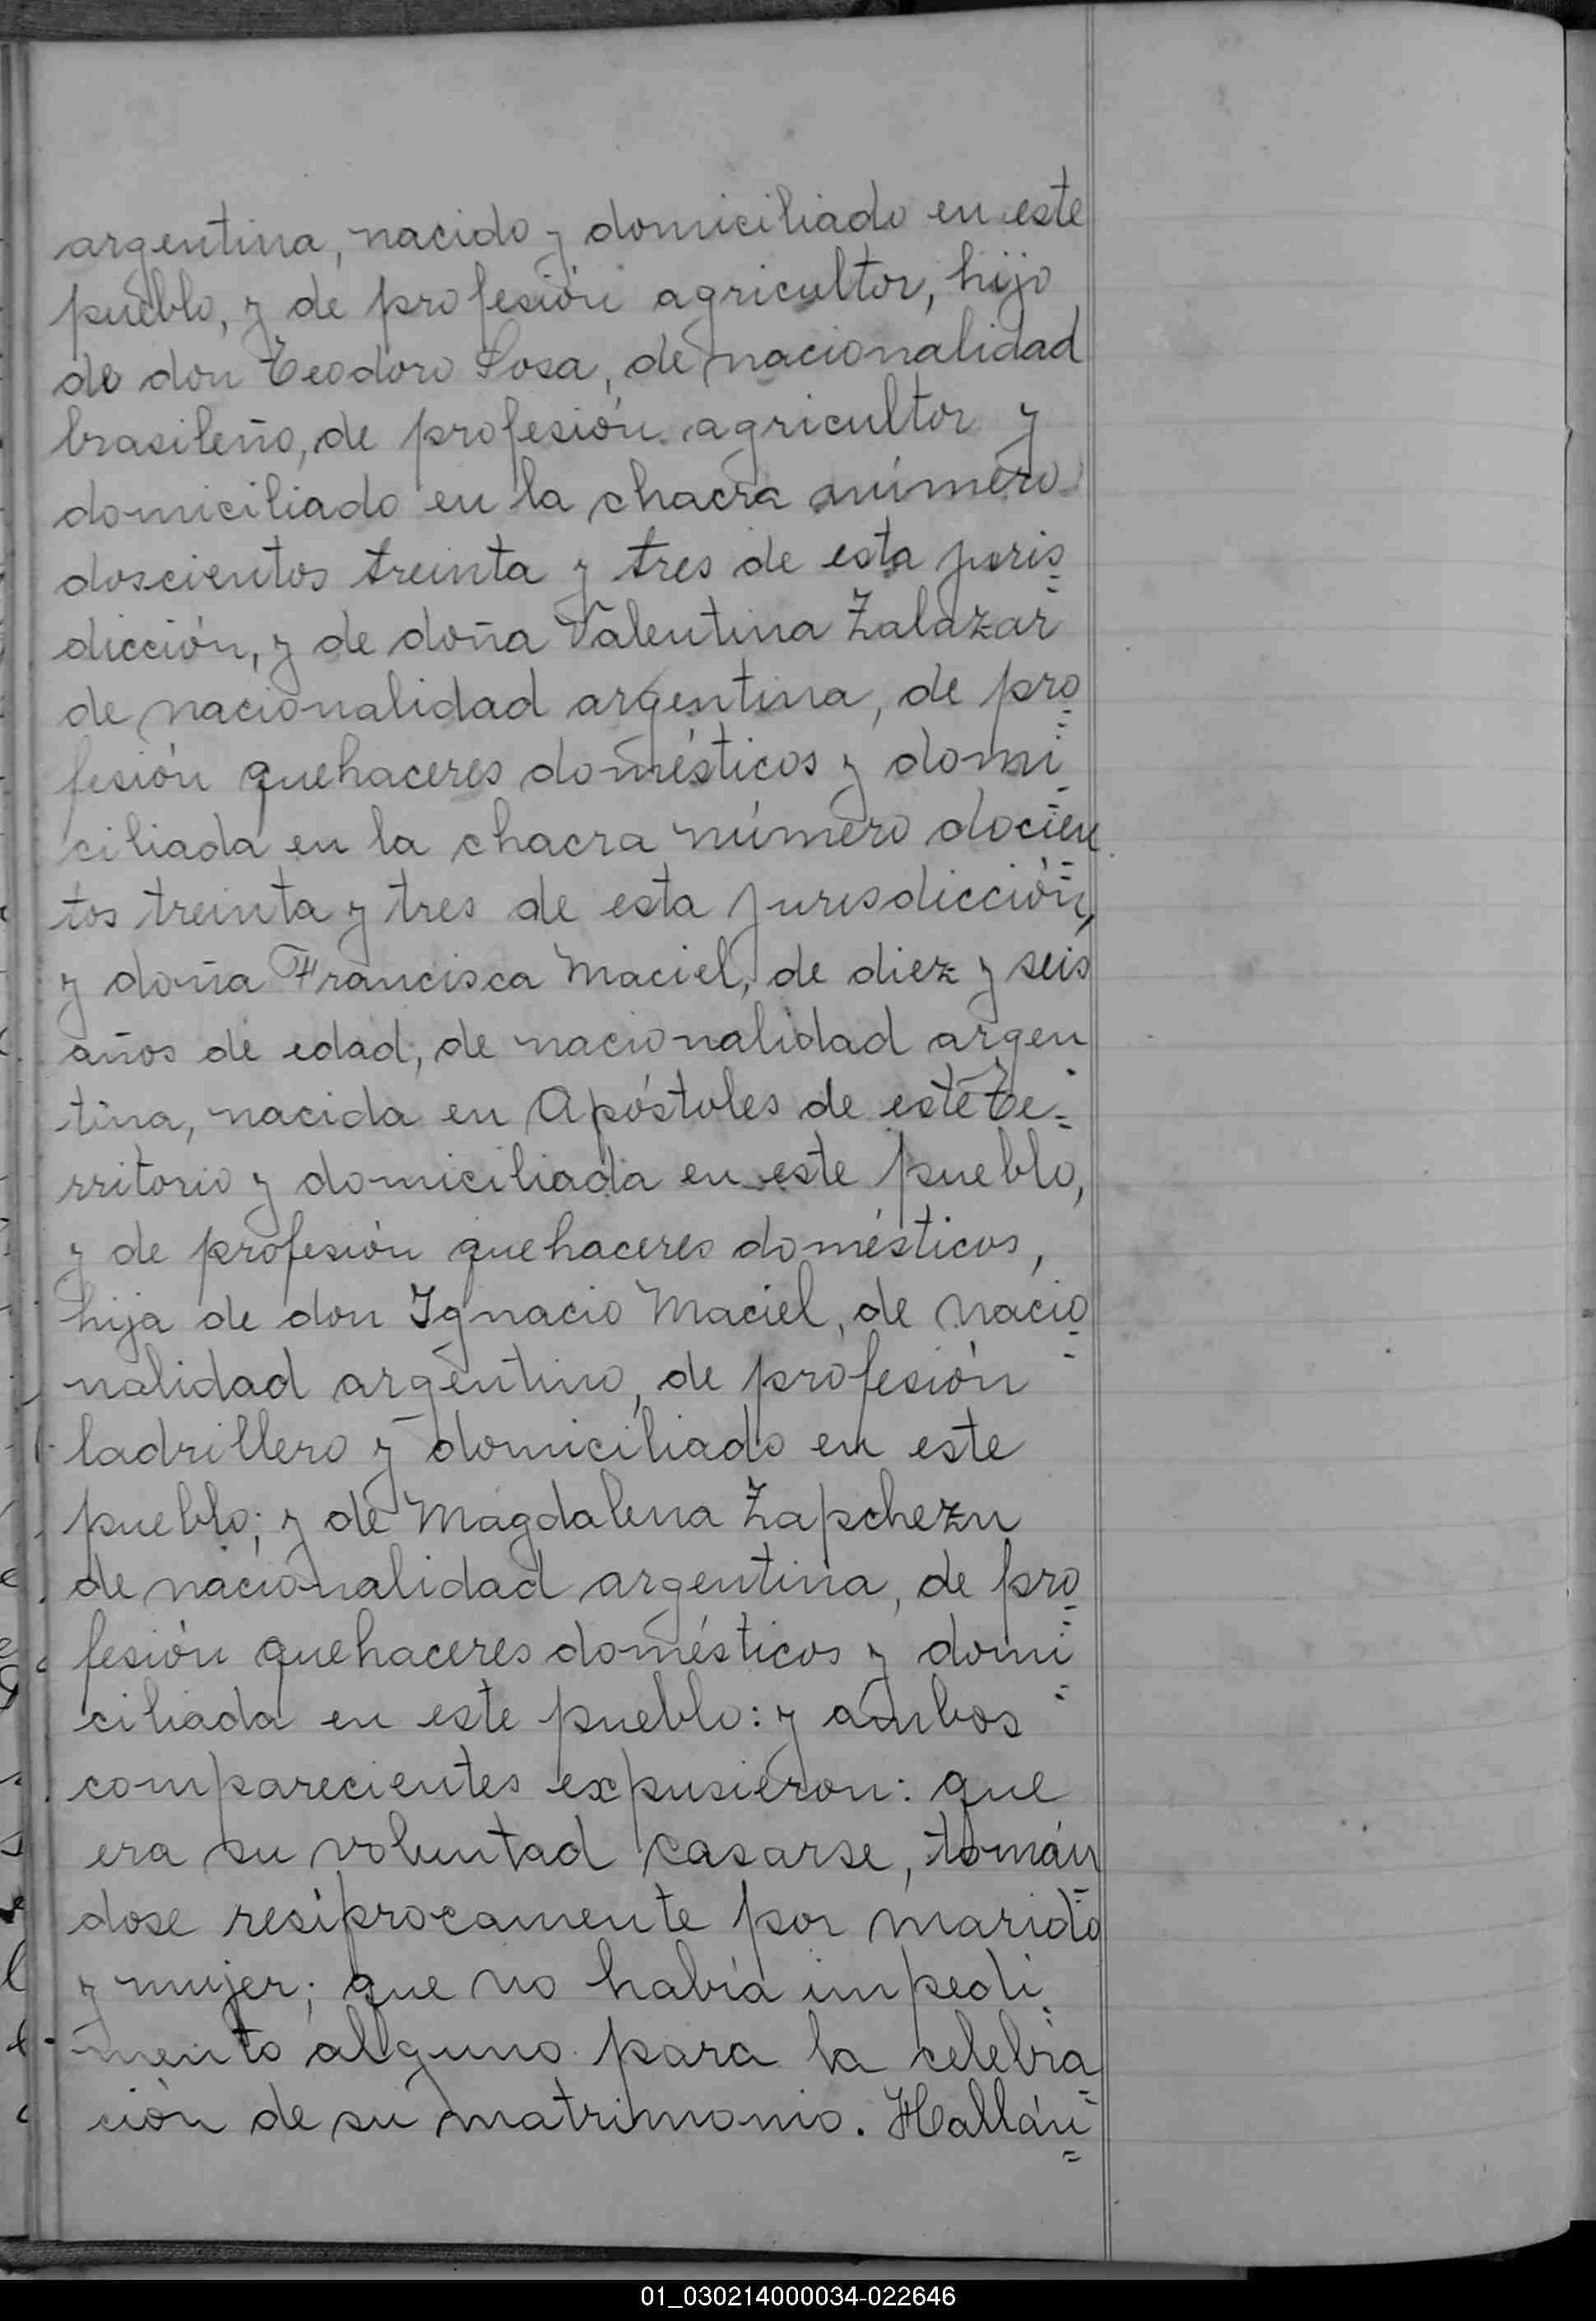 argentina, nacido y domiciliado en este
pueblo, y de profesión agricultor, hijo
de don Teodoro Sosa, de nacionalidad
brasileño, de profesión agricultor y
domiciliado en la chacra número
doscientos treinta y tres de esta juris=
dicción, y de doña Valentina Zalazar
de nacionalidad argentina, de pro=
fesión quehaceres domésticos y domi=
ciliada en la chacra número docien=
tos treinta y tres de esta jurisdicción,
y doña Francisca Maciel, de diez y seis
años de edad, de nacionalidad argen=
tina, nacida en Apóstoles de este Te=
rritorio y domiciliada en este pueblo,
y de profesión quehaceres domésticos,
hija de don Ignacio Maciel, de nacio=
nalidad argentino, de profesión
ladrillero y domiciliado en este
pueblo; y de Magdalena Zapchezu
de nacionalidad argentina, de pro=
fesión quehaceres domésticos y domi=
ciliada en este pueblo: y ambos
comparecientes expusieron: que
era su voluntad casarse, tomán=
dose resiprocamente por marido
y mujer; que no había impedi=
mento alguno para la celebra=
ción de su matrimonio. Hallán=
01_030214000034-022646